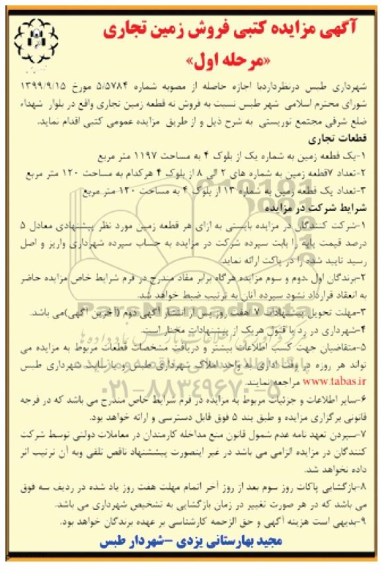 آگهی مزایده کتبی فروش زمین تجاری
«مرحله اول»
شهرداری طبس درنظرداردبا اجازه حاصله از مصوبه شماره ۵/۵۷۸۴ مورخ ۱۳۹۹/۹/۱۵
شورای محترم اسلامی شهر طبس نسبت به فروش نه قطعه زمین تجاری واقع در بلوار شهداء
ضلع شرقی مجتمع توریستی به شرح ذیل و از طریق مزایده عمومی کتبی اقدام نماید.
قطعات تجاری
۱-یک قطعه زمین به شماره یک از بلوک ۴ به مساحت ۱۱۹۷ متر مربع
۲-تعداد ۷قطعه زمین به شماره های ۲ الی ۸ از بلوک ۴ هرکدام به مساحت ۱۲۰ متر مربع
۳-تعداد یک قطعه زمین به شماره ۱۳ از بلوک ۴ به مساحت ۱۲۰ متر مربع
شرایط شرکت در مزایده
۱-شرکت کنندگان در مزایده بایستی به ازای هر قطعه زمین مورد نظر پیشنهادی معادل ۵
درصد قیمت پایه را بابت سپرده شرکت در مزایده به حساب سپرده شهرداری واریز و اصل
رسید تایید شده را در پاکت ارائه نماید.
۲-برندگان اول ،دوم و سوم مزایده هرگاه برابر مفاد مندرج در فرم شرایط خاص مزایده حاضر
به انعقاد قرارداد نشود سپرده آنان به ترتیب ضبط خواهد شد.
۳-مهلت تحویل پیشنهادات ۷ هفت روز پس از انتشار آگهی دوم (آخرین آگهی)می باشد.
۴-شهرداری در رد یا قبول هریک از پیشنهادات مختار است
۵-متقاضیان جهت کسب اطلاعات بیشتر و دریافت مشخصات قطعات مربوط به مزایده می
تواند هر روزه در وقت اداری به واحد املاک شهرداری طبس و یا سایت شهرداری طبس
www.tabas.ir مراجعه نمایند.
۶-سایر اطلاعات و جزئیات مربوط به مزایده در فرم شرایط خاص مندرج می باشد که در فرجه
قانونی برگزاری مزایده و طبق بند ۵ فوق قابل دسترسی و ارائه خواهد بود.
۷-سپردن تعهد نامه عدم شمول قانون منع مداخله کارمندان در معاملات دولتی توسط شرکت
کنندگان در مزایده الزامی می باشد در غیر اینصورت پیشنهاد ناقص تلقی وبه آن ترتیب اثر
داده نخواهد شد.
۸-بازگشایی پاکات روز سوم بعد از روز آخر اتمام مهلت هفت روز یاد شده در ردیف سه فوق
می باشد که در هر صورت تغییر در زمان بازگشایی به تشخیص شهرداری می باشد.
۹-بدیهی است هزینه آگهی و حق الزحمه کارشناسی بر عهده برندگان خواهد بود.
مجید بهارستانی یزدی -شهردار طبس